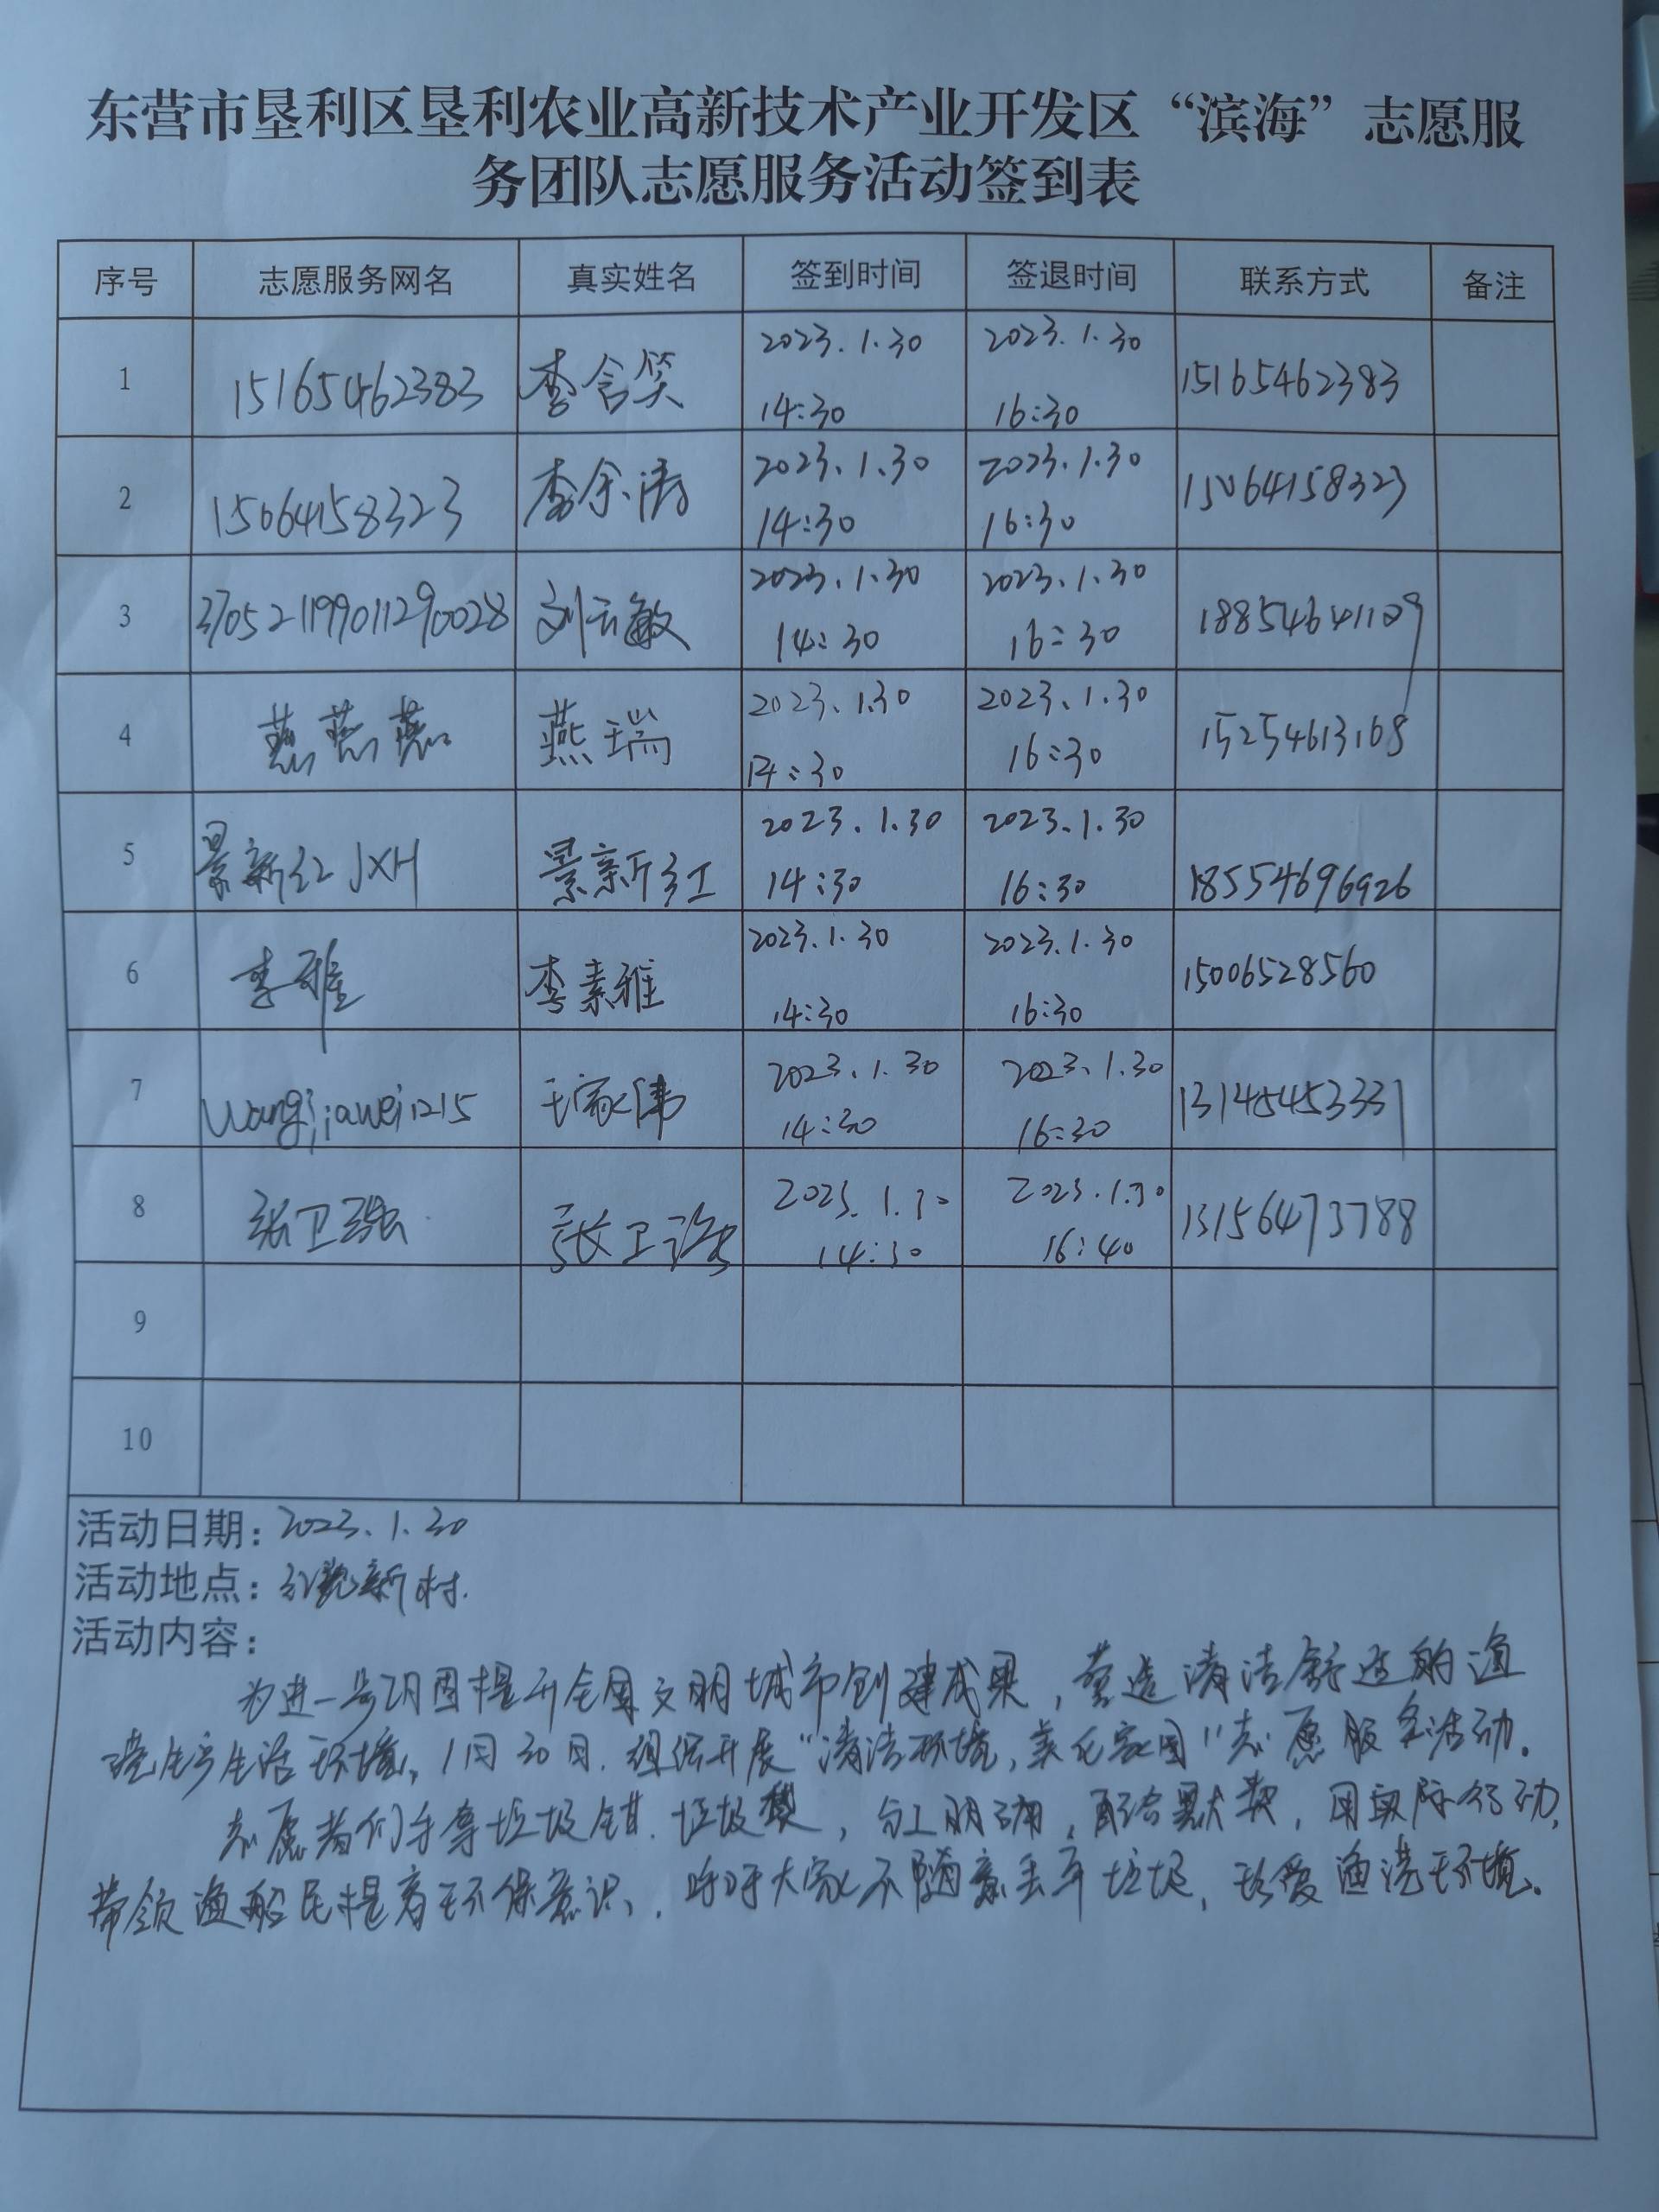 东营市垦利区垦利农业高新技术产业开发区“滨海”志愿服
务团队志愿服务活动签到表
序号 志愿服务网名 真实姓名 签到时间 签退时间 联系方式 备注
1 15165462383 李含笑 2023.1.30 14:30 2023.1.30 16:30 15165462383
2 15064158323 李余涛 2023.1.30 14:30 2023.1.30 16:30 15064158323
3 370521199011290028 刘云敏 2023.1.30 14:30 2023.1.30 16:30 18854641109
4 燕燕燕 燕瑞 2023.1.30 14:30 2023.1.30 16:30 15254613168
5 景新红JXH 景新红 2023.1.30 14:30 2023.1.30 16:30 18554696926
6 李雅 李素雅 2023.1.30 14:30 2023.1.30 16:30 15006528560
7 wangjiawei1215 王家伟 2023.1.30 14:30 2023.1.30 16:30 13145453331
8 张卫强 张卫强 2023.1.30 14:30 2023.1.30 16:40 13156473788
9
10
活动日期：2023.1.30
活动地点：红光新村.
活动内容：
为进一步巩固提升全国文明城市创建成果，营造清洁舒适的渔
港生产生活环境，1月30日.组织开展“清洁环境,美化家园”志愿服务活动.
志愿者们手拿垃圾钳.垃圾袋，分工明确，配合默契，用实际行动,
带领渔船民提高环保意识，呼吁大家不随意丢弃垃圾，珍爱渔港环境。